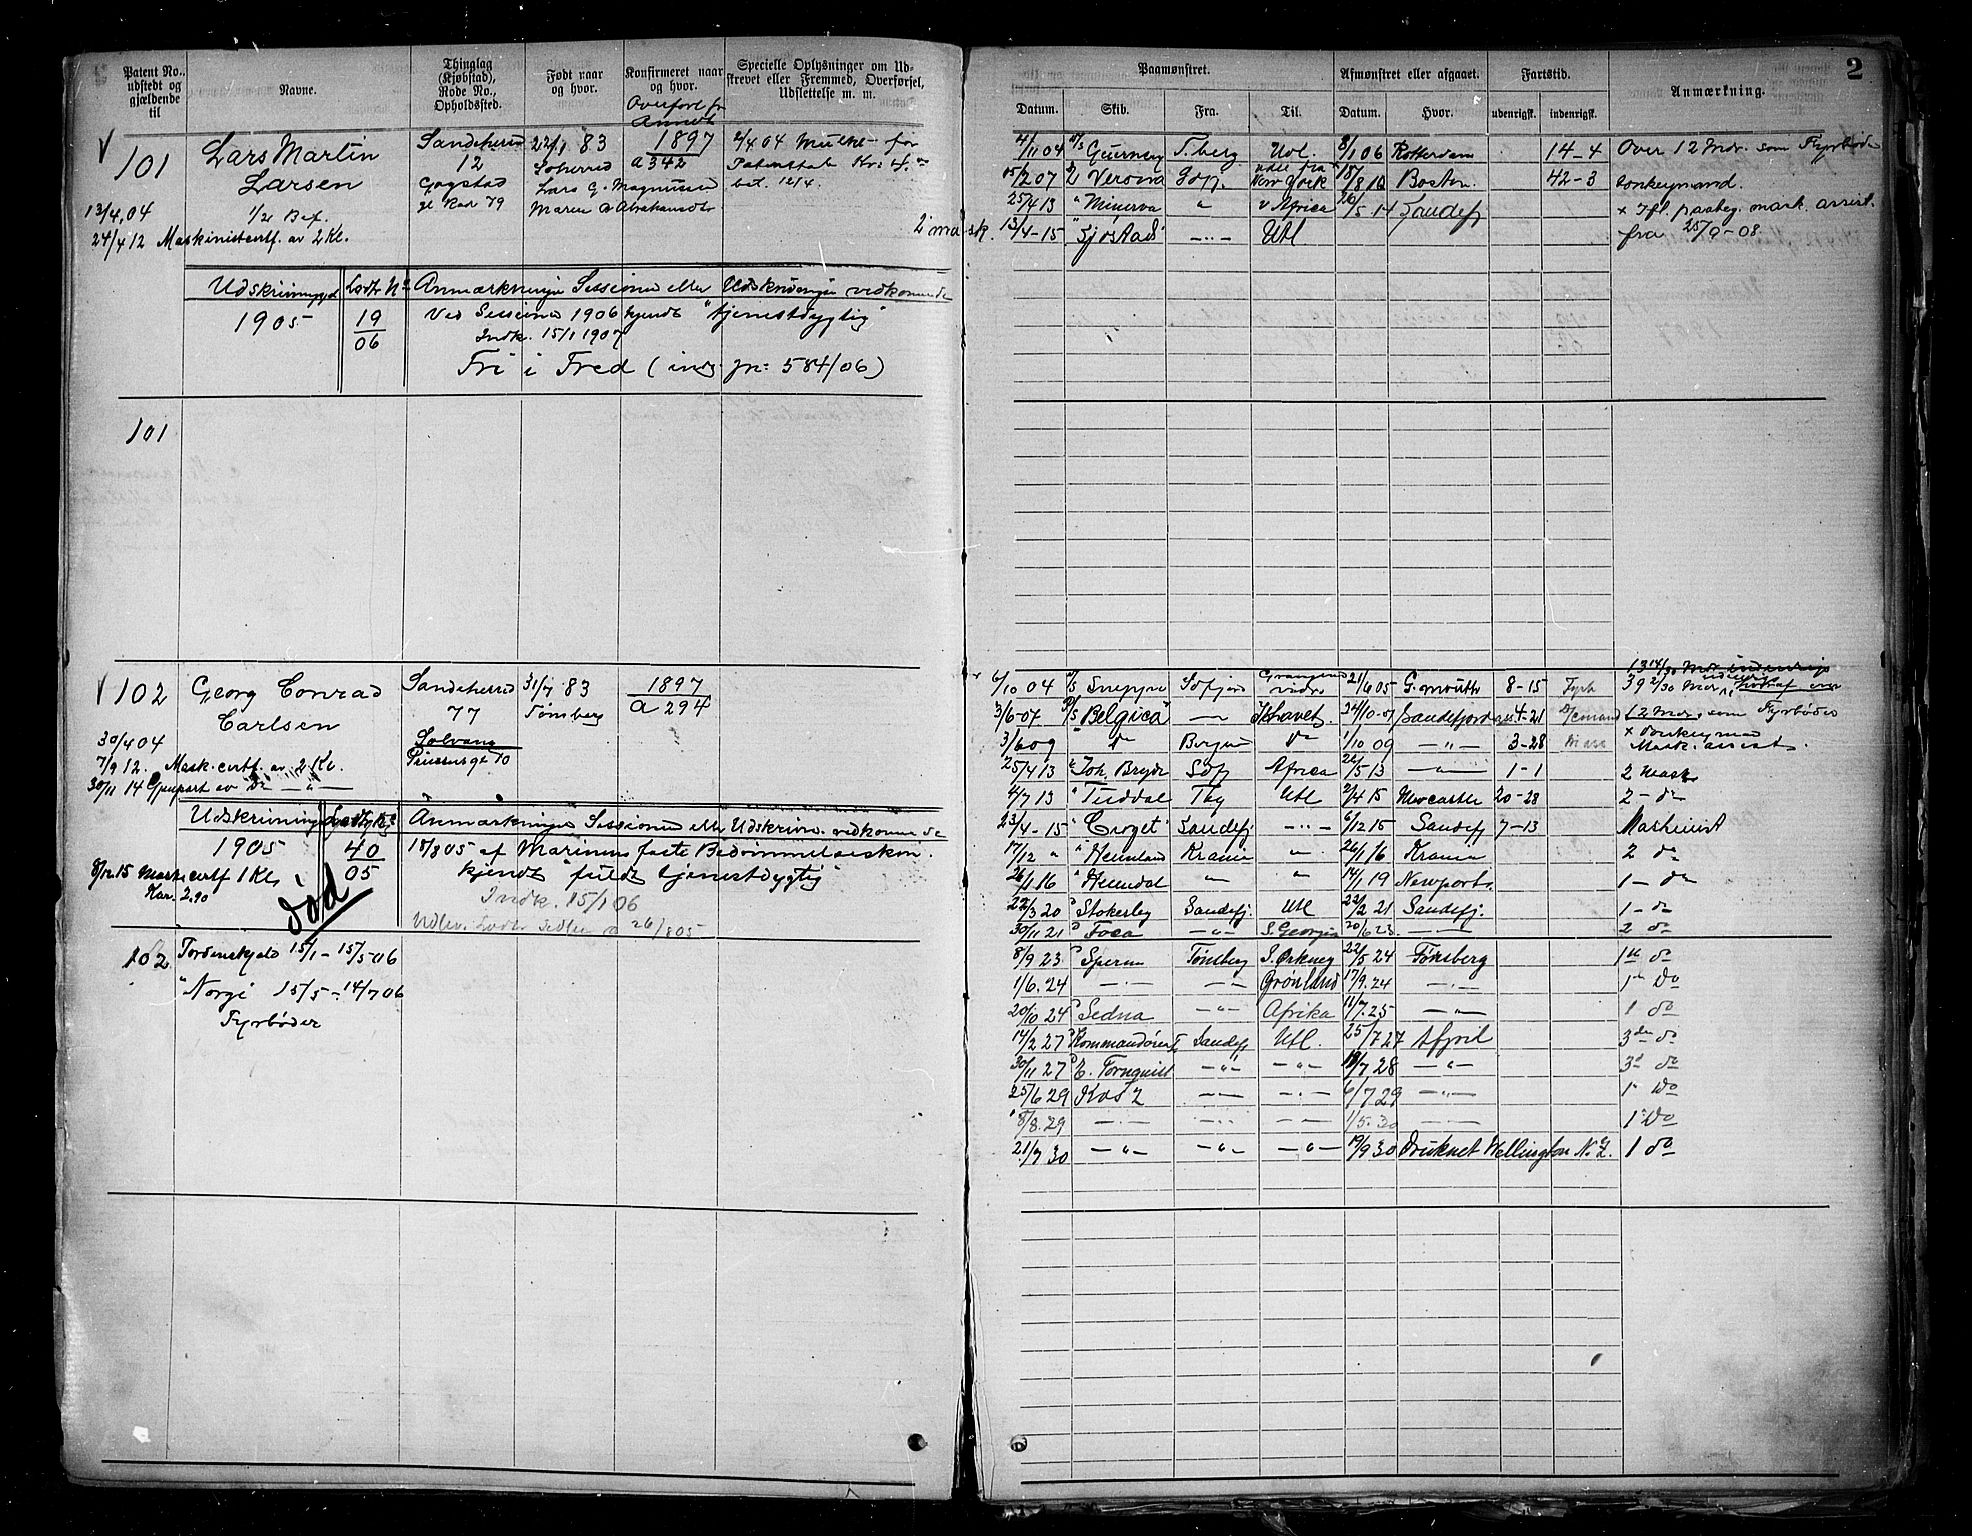 Patent No.,
udstedt og
gjældende
til
Navne.
Thinglag
(Kjøbstad),
Rode No.,
Opholdssted.
Født naar
og hvor.
Konfirmeret naar
og hvor.
Overført fr
Annot
Specielle Oplysninger om Ud-
skrevet eller Fremmed, Overførsel,
Udslettelse m. m.
V 101
Lars Martin
Larsen
1/2 Bef.
13/4 04
24/4 12 Maskinistcertf. av 2 Kl.
Sandeherred
12
Gogstad
gl Rad 79
22/1 83
Soherred
Lars G. Magnussen
Maren A Abrahamsdtr
1897
a 342
2/4 04 Mulkt for
Kr: 4.
bet. 12/4.
Udskrivning
Lodtr No
Anmærkninger Sessioner eller Udskrivninger vedkommende
1905
19
06
Ved Sessionen 1906 kjendt "tjenestdygtig"
Indk. 15/1 1907
Fri i Fred (indg. jn: 584/06)
101
V 102
Georg Conrad
Carlsen
30/4 04
7/9 12. Mask. certf. av 2 Kl.
30/11 14 Gjenpart av Do —"—
Sandeherred
77
Solvang
10
31/7 83
Tønsberg
1897
a 294
Udskrivning
Lodtr No
Anmærkninger Sessioner eller Udskrivn. vedkommende
1905
40
05
18/8 05 af Marinens faste Bedømmelseskom.
kjendt "fuldt tjenestdygtig"
Indk. 15/1 06
Udlev. Lodtr Sedlen 26/8 05
8/12 15 Mask. certf 1 Kl.
Kar. 2.90
død
102
Tordenskjold 15/1 – 15/5 06
"Norge 15/5 – 14/7 06
Fyrbøder
2
Paamønstret.
Afmønstret eller afgaaet.
Fartstid.
Anmærkning.
Datum.
Skib.
Fra.
Til.
Datum.
Hvor.
udenrigsk.
indenrigsk.
4/11 04 Guernsey T.berg Udl. 8/1 06 Rotterdam 14-4 Over 12 Mdr. som Fyrbøder
15/2 07 Verona New York 18/8 10 Boston. 42-3 donkeymand.
25/4 13 " Minerva " v Africa 26/5 14 Sandefj x Ifl. paateg. mask. assist.
2 mask. 13/4-15 " Sjøstad —"— Utl fra 25/9-08
13 14/30 Mdr indenrigs
6/10 04 Sneppe 21/6 05 G.mouth 8-15 Fyrb 39 2/30 Mdr, hvoraf over
3/6-07 "Belgica" —"— Ishavet. 24/10-07 Sandefjord 4-21 12 Mdr. som Fyrbøder
3/6 09 Do Bergen Do 1/10 09 —"— 3-28 x donkeymand Mask. assist.
25/4 13 " Joh. Bryde Sdfj Africa 26/5 13 —"— 1-1 2 Mask
4/7 13 Tbg Utl 2/4 15 Newcastle 20-28 2 - do
23/4-15 " Sandefj. —"— 6/12 15 Sandefj 7-13 Maskinist
17/12 " Krania " 26/1 16 Krania 2 do
26/1 16 " Heimdal " " 14/1 19 Newport 1- do
22/3 20 Stokesley Sandefj. Utl 22/2 21 Sandefj. 1- do
30/11 21 Foca —"— S. Georgia 20/6 23. —"— 2 do
8/9 23 Sperm Tønsberg S. Orkney 22/5 24 Tønsberg 1ste do
1/6.24 —"— —"— Grønland 17/9.24 —"— 1 Do
20/10 24 Sedna —"— Afrika 11/7.25 —"— 1 do
14/2 27 Kommandøren I Sandefj Utl. 25/7 27 Afjol 3die do
30/11 27 E. Tornquist —"— —"— 19/7 28 —"— 3d do
25/6 29 Kos 2 —"— —"— 6/7 29 —"— 1 Do
8/8.29 —"— —"— —"— 1/5.30 —"— 1 Do
21/7 30 —"— —"— —"— 19/9 30 Druknet Wellington N.Z. 1 do